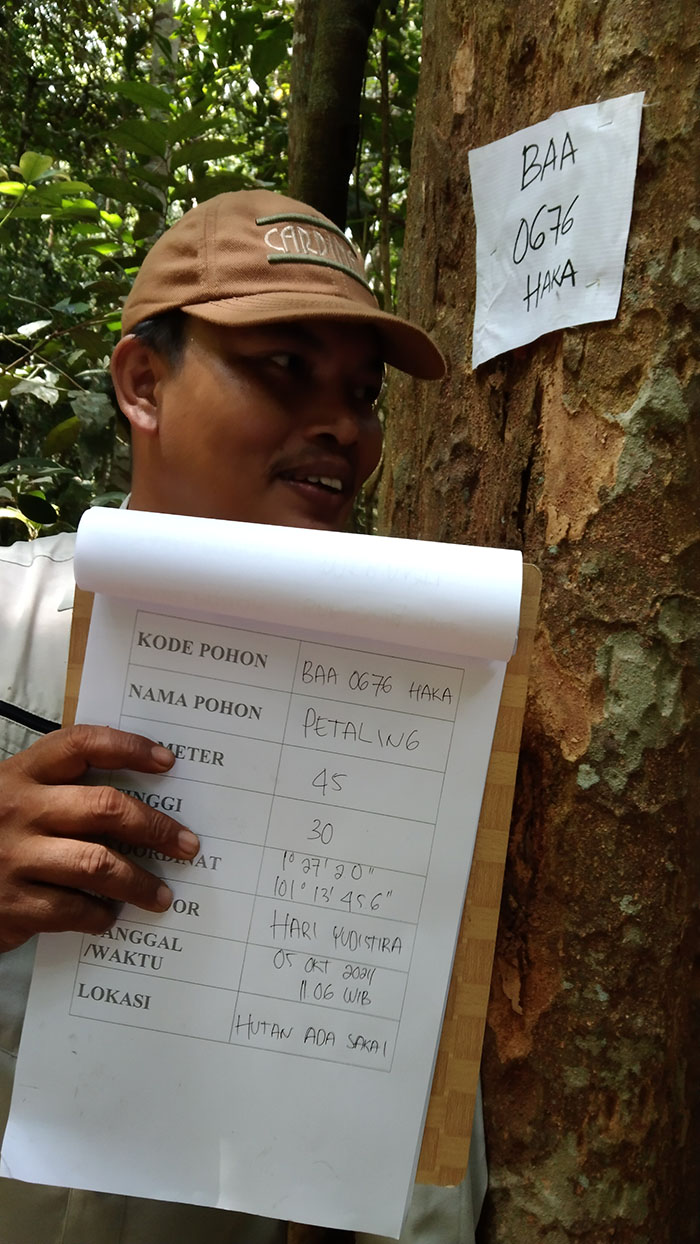 BAA
0676
HAKA
KODE POHON
BAA 0676 HAKA
NAMA POHON
PETALING
METER
45
TINGGI
30
KOORDINAT
1° 27' 20"
101° 13' 456"
OR
HARI YUDISTIRA
TANGGAL
/WAKTU
05 OKT 2021
11 06 WIB
LOKASI
HUTAN ADA SAKAI